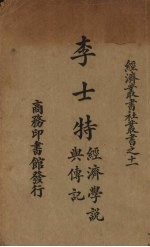 經濟叢書社叢書之十一
李士特
經濟學說
與傳記
商務印書館發行